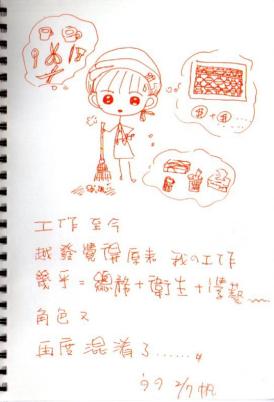 工作 至今
越發覺得原來 我の工作
幾乎=總務+衛生+學藝~~
角色又
再度混淆了......
'99 2/7 帆